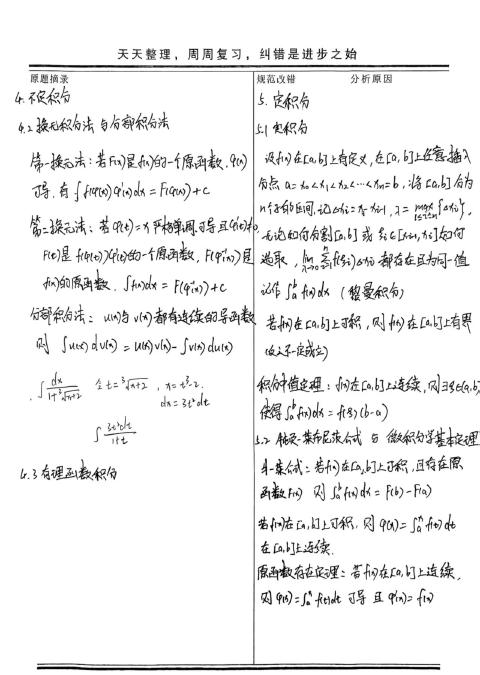 天天整理，周周复习，纠错是进步之始
原题摘录
4. 不定积分
4.2 换元积分法与分部积分法
第一换元法：若F(x)是f(x)的一个原函数，φ(x)
可导，有∫f(φ(x))φ'(x)dx = F(φ(x))+C
第二换元法：若φ(t)=x严格单调可导且φ'(t)≠0，
F(t)是f(φ(t))φ'(t)的一个原函数，F(φ⁻¹(x))是
f(x)的原函数．∫f(x)dx = F(φ⁻¹(x))+C
分部积分法：u(x)与v(x)都有连续的导函数
则 ∫u(x)dv(x) = u(x)v(x)-∫v(x)du(x)
∫dx/(1+³√(x+2)) 令t=³√(x+2)，x=t³-2.
dx=3t²dt
∫3t²dt/(1+t)
4.3 有理函数积分
规范改错 分析原因
5. 定积分
5.1 定积分
设f(x)在[a,b]上有定义，在[a,b]上任意插入
分点a=x₀<x₁<x₂<…<xₙ=b，将[a,b]分为
n个子区间，记Δxᵢ=xᵢ-xᵢ₋₁，λ=max{Δxᵢ}，1≤i≤n
无论如何分割[a,b]或ξᵢ∈[xᵢ₋₁,xᵢ]如何
选取，lim(λ→0)Σf(ξᵢ)Δxᵢ都存在且为同一值
记作∫ₐᵇf(x)dx（黎曼积分）
若f(x)在[a,b]上可积，则f(x)在[a,b]上有界
(反之不一定成立)
积分中值定理：f(x)在[a,b]上连续，则∃ξ∈(a,b)
使得∫ₐᵇf(x)dx=f(ξ)(b-a)
5.2 牛顿-莱布尼茨公式与微积分学基本定理
牛-莱公式：若f(x)在[a,b]上可积，且存在原
函数F(x) 则∫ₐᵇf(x)dx=F(b)-F(a)
若f(x)在[a,b]上可积，则φ(x)=∫ₐˣf(t)dt
在[a,b]上连续．
原函数存在定理：若f(x)在[a,b]上连续，
则φ(x)=∫ₐˣf(t)dt可导且φ'(x)=f(x)